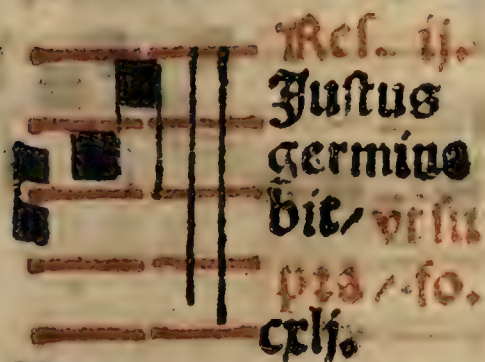 Res. ij.
Justus
germina
bit / vt su
pra / fo.
cxlj.